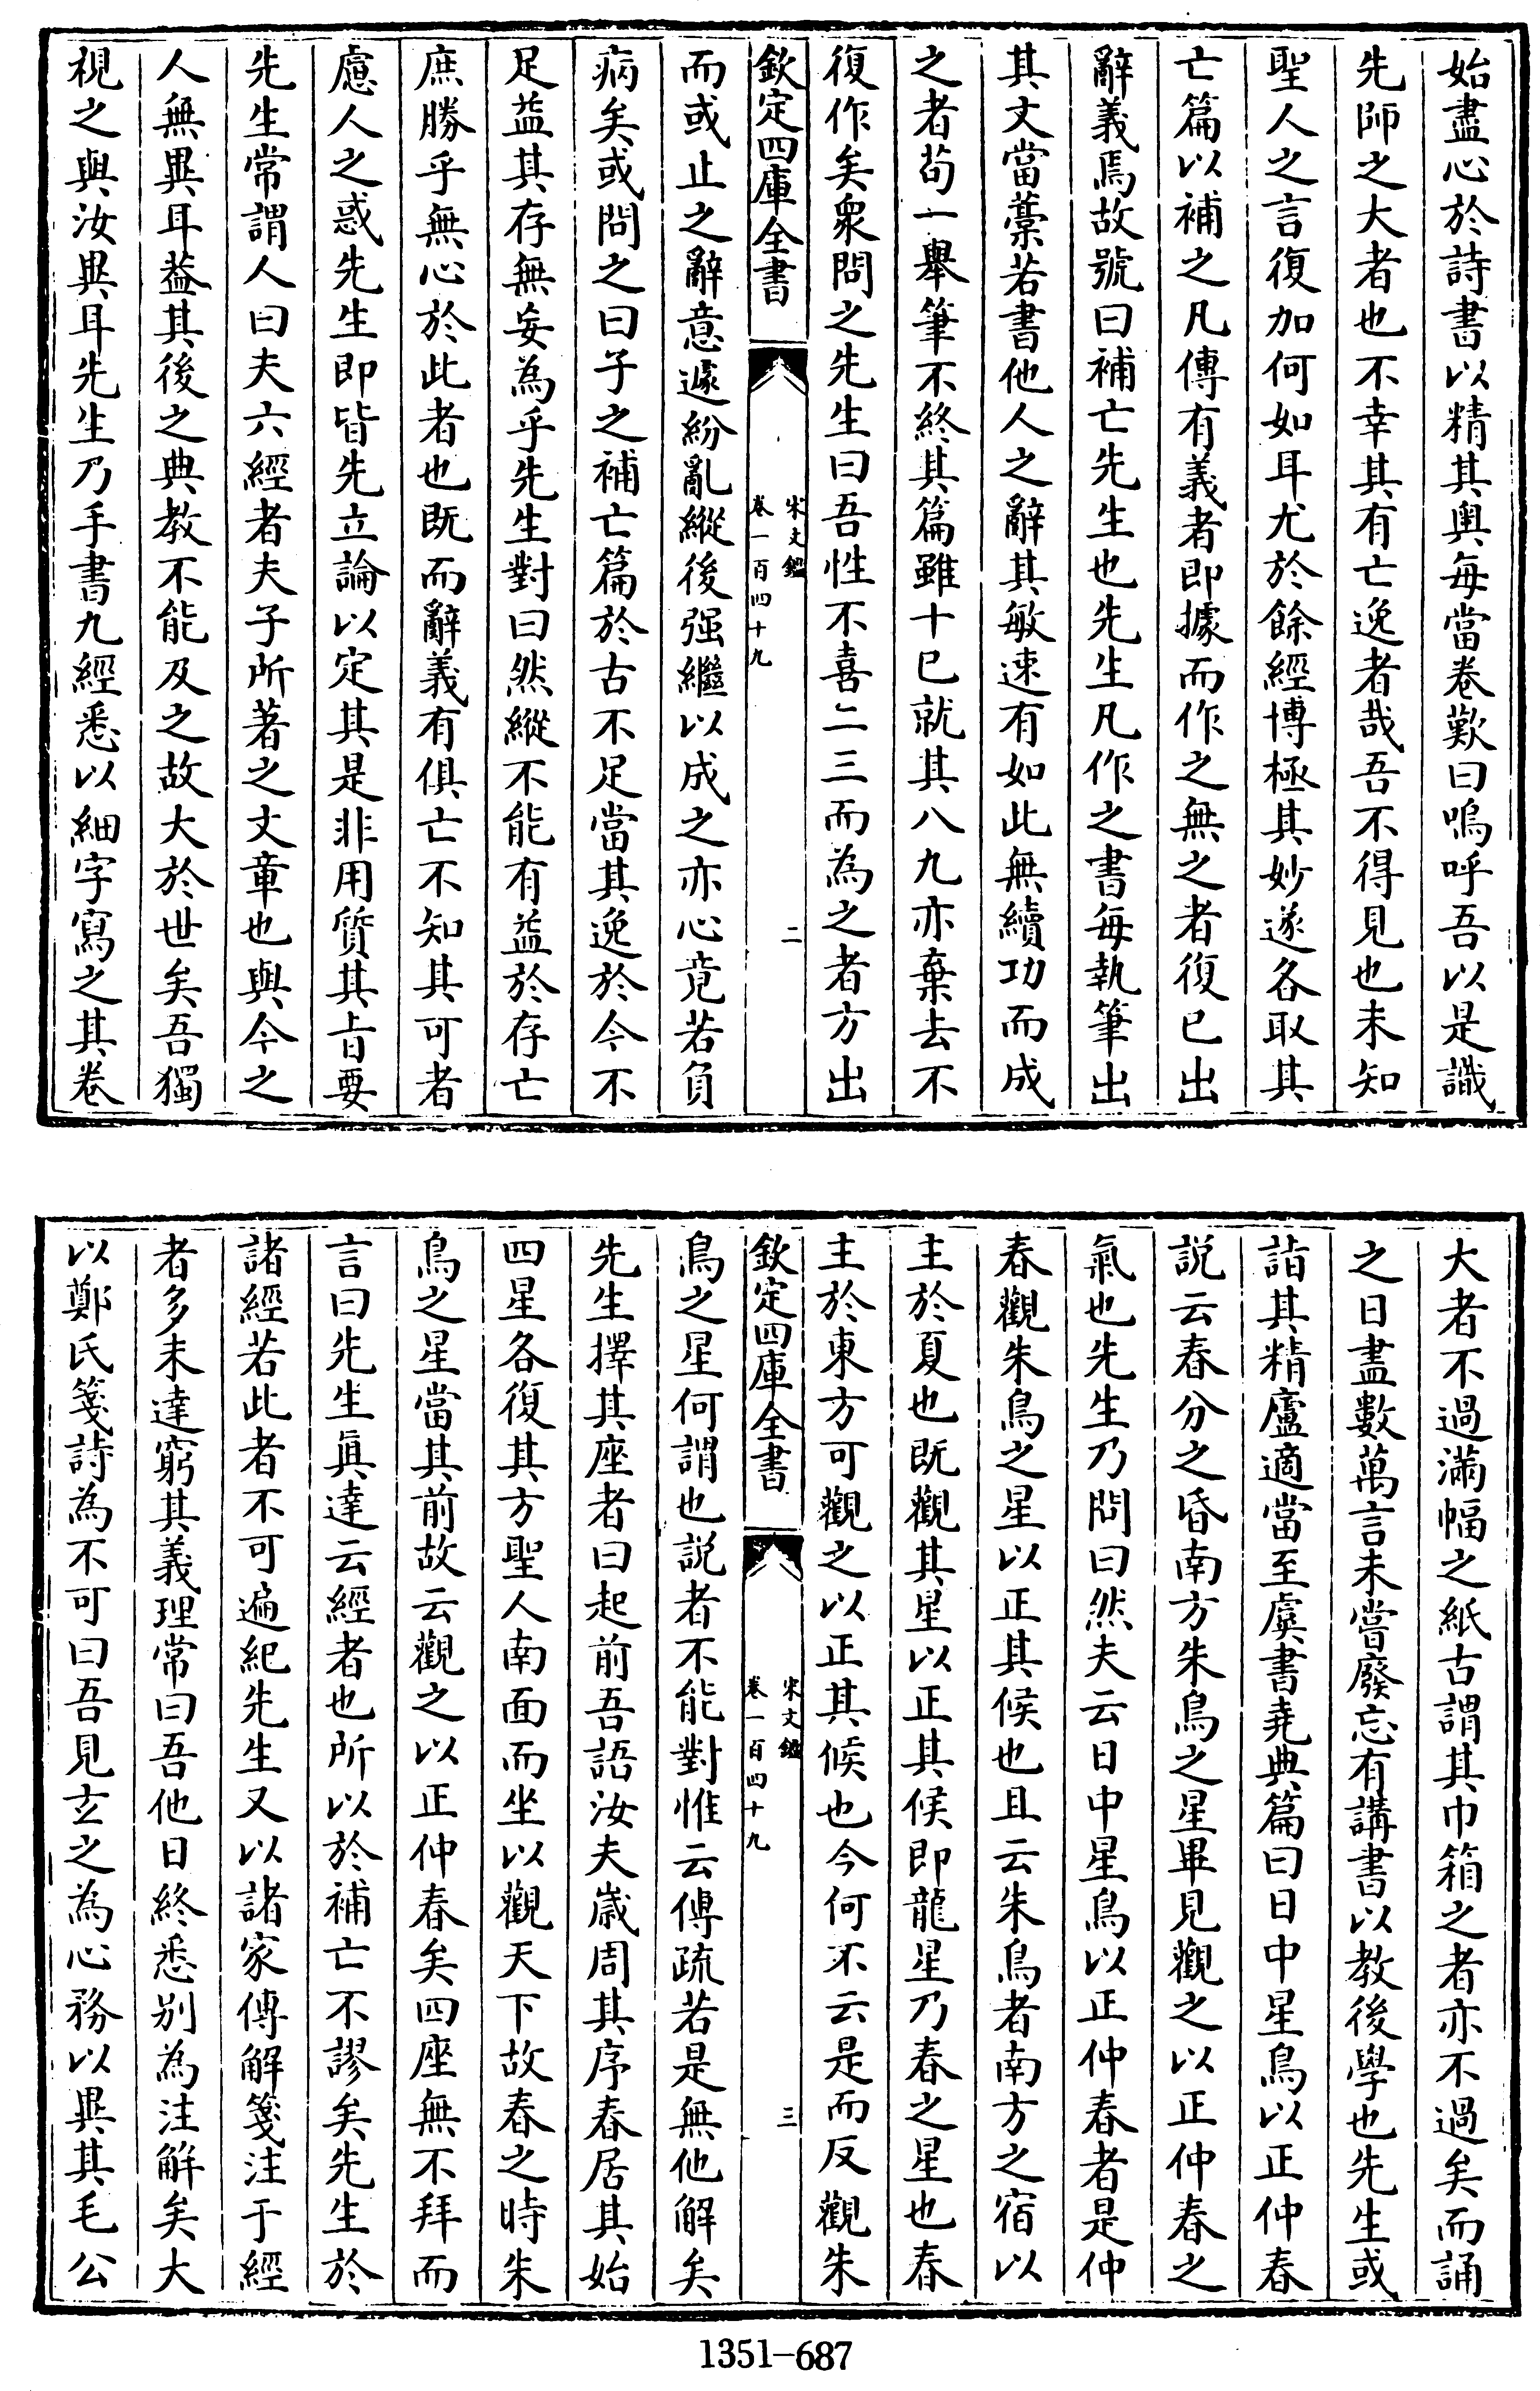 始盡心於詩書以精其奥每當卷歎曰嗚呼吾以是識
先師之大者也不幸其有亡逸者哉吾不得見也未知
聖人之言復加何如耳尤於餘經博極其妙遂各取其
亡篇以補之凡傳有義者即據而作之無之者復已出
辭義焉故號曰補亡先生也先生凡作之書每執筆出
其文當藁若書他人之辭其敏速有如此無續功而成
之者苟一舉筆不終其篇雖十已就其八九亦棄去不
復作矣衆問之先生曰吾性不喜二三而為之者方出
欽定四庫全書
宋文鑑
卷一百四十九
二
而或止之辭意遽紛亂縱後强繼以成之亦心竟若負
病矣或問之曰子之補亡篇於古不足當其逸於今不
足益其存無妄為乎先生對曰然縱不能有益於存亡
庶勝乎無心於此者也既而辭義有俱亡不知其可者
慮人之惑先生即皆先立論以定其是非用質其旨要
先生常謂人曰夫六經者夫子所著之文章也與今之
人無異耳葢其後之典教不能及之故大於世矣吾獨
視之與汝異耳先生乃手書九經悉以細字寫之其卷
大者不過滿幅之紙古謂其巾箱之者亦不過矣而誦
之日盡數萬言未嘗廢忘有講書以教後學也先生或
詣其精廬適當至虞書堯典篇曰日中星鳥以正仲春
説云春分之昏南方朱鳥之星畢見觀之以正仲春之
氣也先生乃問曰然夫云日中星鳥以正仲春者是仲
春觀朱鳥之星以正其候也且云朱鳥者南方之宿以
主於夏也既觀其星以正其候即龍星乃春之星也春
主於東方可觀之以正其候也今何不云是而反觀朱
欽定四庫全書
宋文鑑
卷一百四十九
三
鳥之星何謂也説者不能對惟云傳疏若是無他解矣
先生擇其座者曰起前吾語汝夫嵗周其序春居其始
四星各復其方聖人南面而坐以觀天下故春之時朱
鳥之星當其前故云觀之以正仲春矣四座無不拜而
言曰先生眞達云經者也所以於補亡不謬矣先生於
諸經若此者不可遍紀先生又以諸家傳解箋注于經
者多未達窮其義理常曰吾他日終悉别為注解矣大
以鄭氏箋詩為不可曰吾見玄之為心務以異其毛公
1351-687